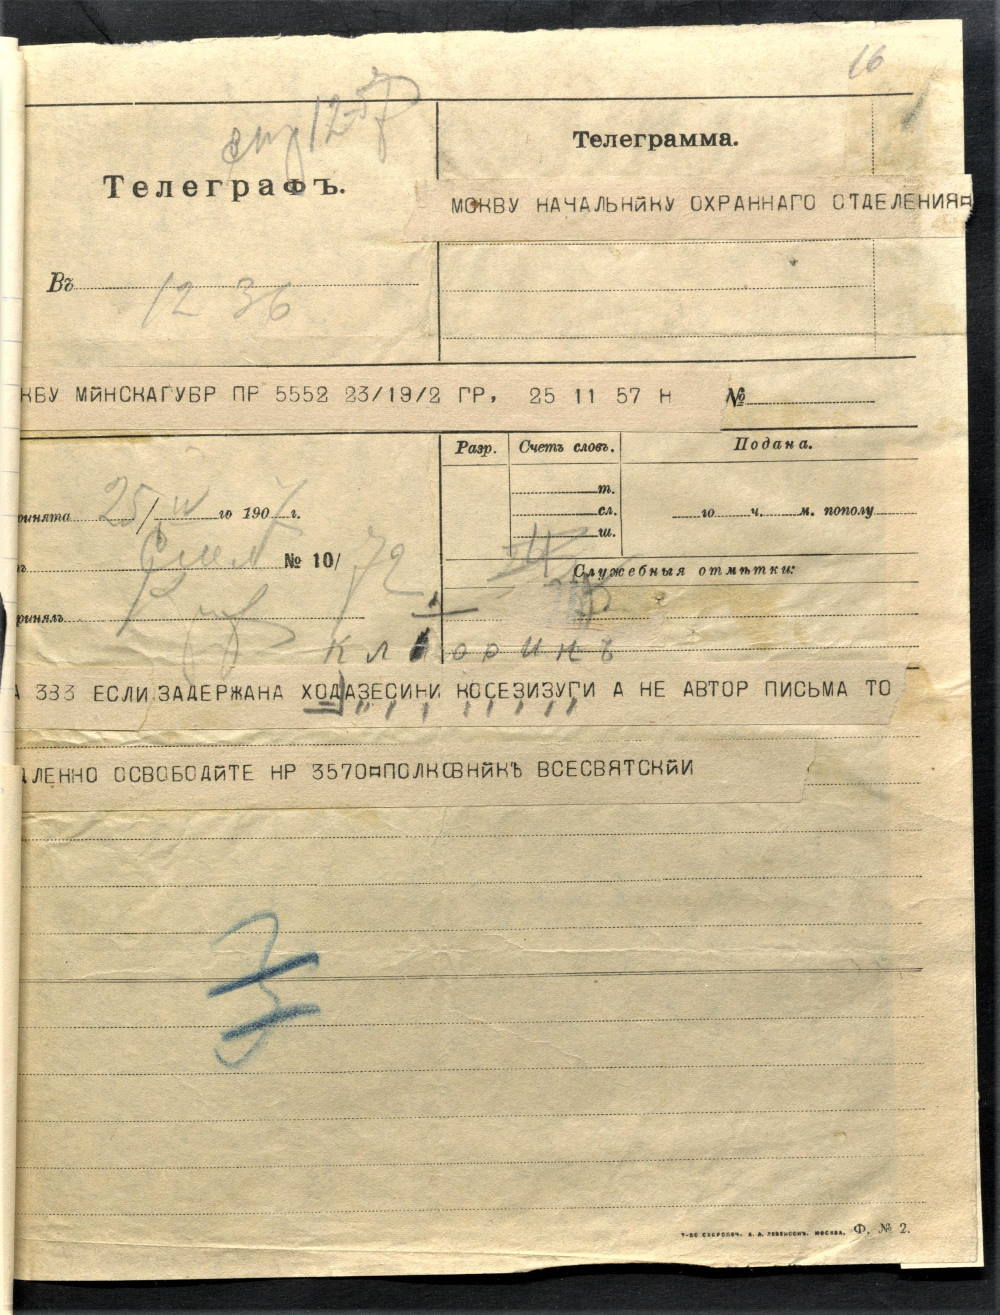 16
12 57
Телеграфъ.
Телеграмма.
МОКВУ НАЧАЛЬНЙКУ ОХРАННАГО ОТДЕЛЕНИЯ¤
Въ
12 36
КВУ МЙНСКАГУБР ПР 5552 23/19/2 ГР, 25 11 57 Н
№
Разр. Счетъ словъ. Подана.
т.
инята 25/IV го 1907 г.
сл.
го ч. м. пополу
ш.
№ 10/ 72
Служебныя отмѣтки:
ринялъ
А 333 ЕСЛИ ЗАДЕРЖАНА ХОДАЗЕСИНИ КОСЕЗИЗУГИ А НЕ АВТОР ПИСЬМА ТО
ЛЕННО ОСВОБОДЙТЕ НР 3570¤ПОЛКОВНЙКЪ ВСЕСВЯТСКЙИ
З
Т-во скоропеч. А. А. Левенсонъ. Москва. Ф. № 2.